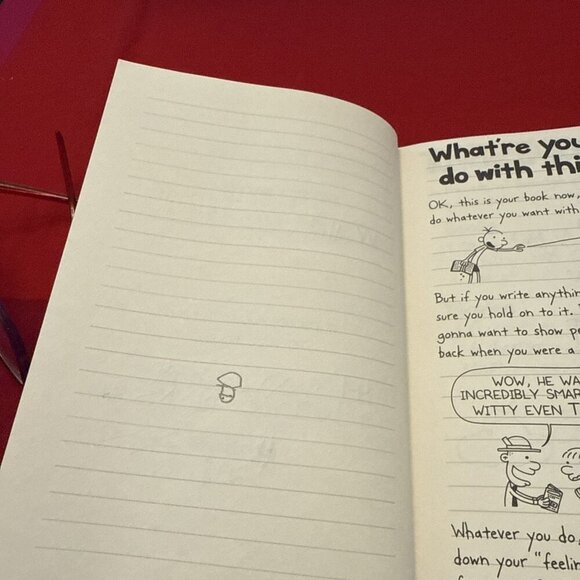 What're you
do with thi
OK, this is your book now,
do whatever you want with
But if you write anythin
sure you hold on to it.
gonna want to show pe
back when you were a
WOW, HE WA
INCREDIBLY SMAR
WITTY EVEN T
Whatever you do,
down your "feelin